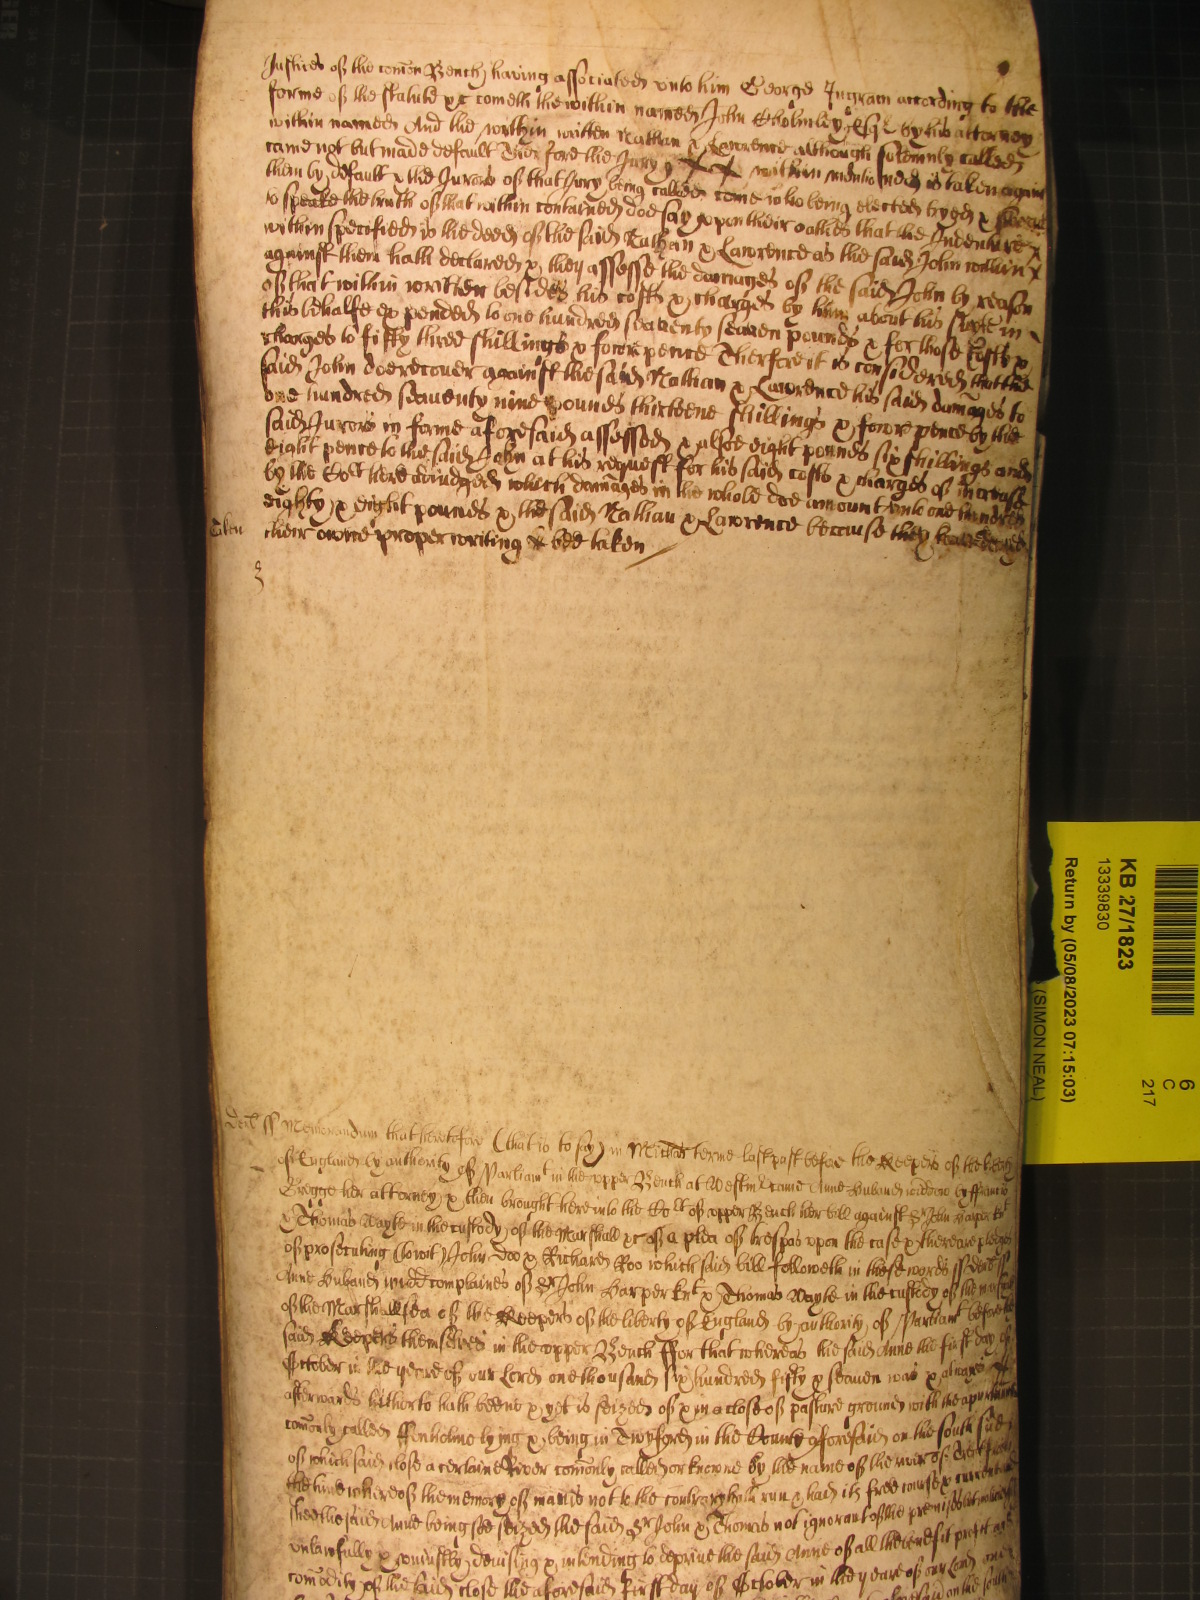 Justices of the comon Bench having associated unto him George Ingram according to the
forme of the statute &c cometh the within named John Cholmley Esqr by his attorney
within named And the within written Nathan & Lawrence although solemnly called
came not but made default Therefore the Jury within mentioned is taken against
them by default & the Jurors of that Jury being called come who being elected tryed &
to speake the truth of that within contained doe say upon their oathes that the Indenture
within specified is the deed of the said Nathan & Lawrence as the said John within
against them hath declared & they assesse the damages of the said John by reason
of that within written besides his costs & charges by him about his suite in
this behalfe expended to one hundred seaventy seaven pounds & for those costs &
charges to fifty three shillings & fowre pence Therfore it is considered that the
said John doe recover against the said Nathan & Lawrence his said damages to
one hundred seaventy nine pounds thirteene shillings & fowre pence by the
said Jurors in forme aforesaid assessed & alsoe eight pounds six shillings and
eight pence to the said John at his request for his said costs & charges of increase
by the Cort here adiudged which damages in the whole doe amount unto one hundred
eighty & eight pounds & the said Nathan & Lawrence because they
their owne proper writing bee taken
ss Memorandum that heretofore (that is to say) in Michas terme last past before the Keepers of the liberty
of England by authority of Parliamt in the upper Bench at Westmr came Anne Huband widdow by ffrancis
Gregge her attorney & then brought here into the Cort of upper Bench her bill against Sr John Harper Knt
& Thomas Wayte in the custody of the Marshall &c of a plea of trespas upon the case & there are pledges
of prosecuting (towit) John Doo & Richard Roo which said bill followeth in these words ss
Anne Huband widd complaines of Sr John Harper Knt & Thomas Wayte in the custody of the
of the Marshalsea of the Keepers of the liberty of England by authority of Parliamt before the
said Keepers themselves in the upper Bench ffor that whereas the said Anne the first day of
October in the yeare of our Lord one thousand six hundred fifty & seaven was & alwaies
afterwards hitherto hath beene & yet is seized of & in a close of pasture ground with the
comonly called ffenholme lying & being in Twyford in the County aforesaid on the south side
of which said close a certaine River comonly called or knowne by the name of the river of
the time whereof the memory of man is not to the contrary hath run & had its free course &
shee the said Anne being soe seized the said Sr John & Thomas not ignorant of the premisses but
unlawfully & uniustly devising & intending to deprive the said Anne of all the benefit profit and
comodity of the said close the aforesaid first day of October in the yeare of our Lord one
KB 27/1823
13339830
Return by (05/08/2023 07:15:03)
(SIMON NEAL)
6
C
217